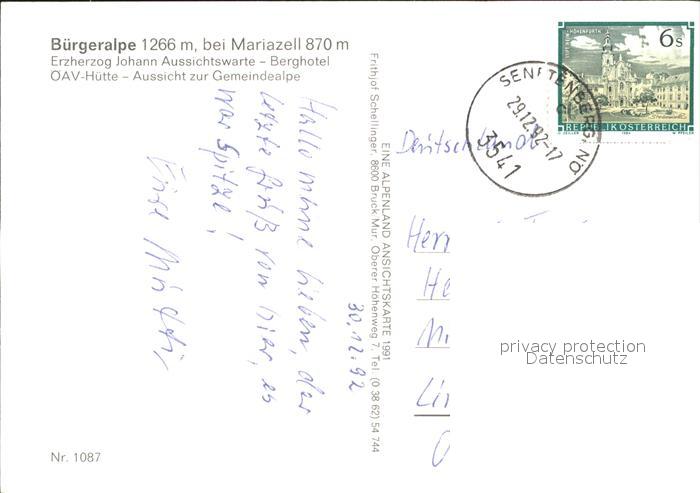 Bürgeralpe 1266 m, bei Mariazell 870 m
Erzherzog Johann Aussichtswarte – Berghotel
ÖAV-Hütte – Aussicht zur Gemeindealpe
30.12.92
Hallo meine Lieben, der
letzte Gruß von hier, es
war Spitze!
Eure
Nr. 1087
EINE ALPENLAND ANSICHTSKARTE 1991
Frithjof Schellinger, 8600 Bruck Mur, Oberer Höhenweg 7, Tel. (0 38 62) 54 744
6 S
REPUBLIK ÖSTERREICH
SENFTENBERG, NÖ
29.12.92-17
3541
Deutschland
Herr
He
privacy protection
Datenschutz